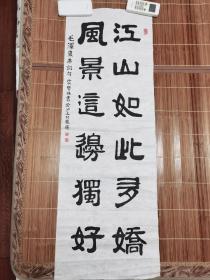 江山如此多嬌
風景這邊獨好
毛澤東詩詞句